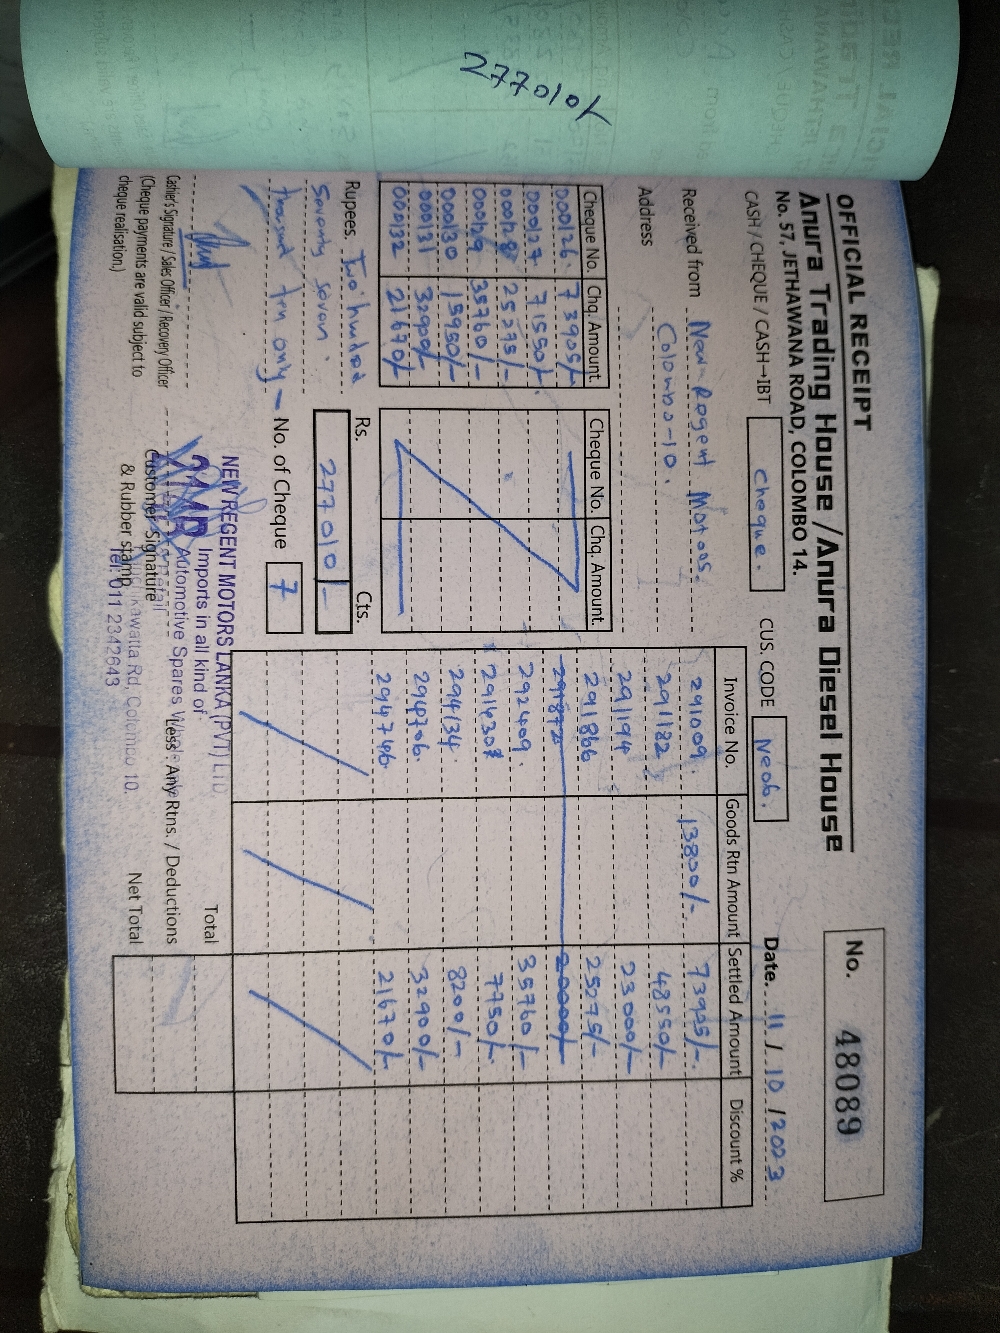 27701O/
OFFICIAL RECEIPT
Anura Trading House /Anura Diesel House
No. 57, JETHAWANA ROAD, COLOMBO 14.
No. 48089
CASH / CHEQUE / CASH→IBT Cheque. CUS. CODE Ne06. Date. 11 / 10 / 2023
Received from New Regent Motors.
Address Colombo-10.
Cheque No. Chq. Amount Cheque No. Chq. Amount
000126. 73905/-
000127. 71550/-
000128 25275/-
000129 35760/-
000130 15950/-
000131 32900/-
000132 21670/-
Rupees. Two hundred
Seventy Seven
thousand ten only
Rs. Cts.
277010/-
No. of Cheque 7
Invoice No. Goods Rtn Amount Settled Amount Discount %
291009. 13800/- 73905/-
291182 48550/-
291194 23000/-
291866 25275/-
291872 20000/-
292409. 35760/-
291430 7750/-
294134. 8200/-
294706. 32900/-
294746. 21670/-
Total
Less : Any Rtns. / Deductions
Net Total
Cashier's Signature / Sales Officer / Recovery Officer
(Cheque payments are valid subject to
cheque realisation.)
Customer Signature
& Rubber stamp
NEW REGENT MOTORS LANKA (PVT) LTD
Imports in all kind of
Automotive Spares
Rd, Colombo 10.
Tel: 011 2342643